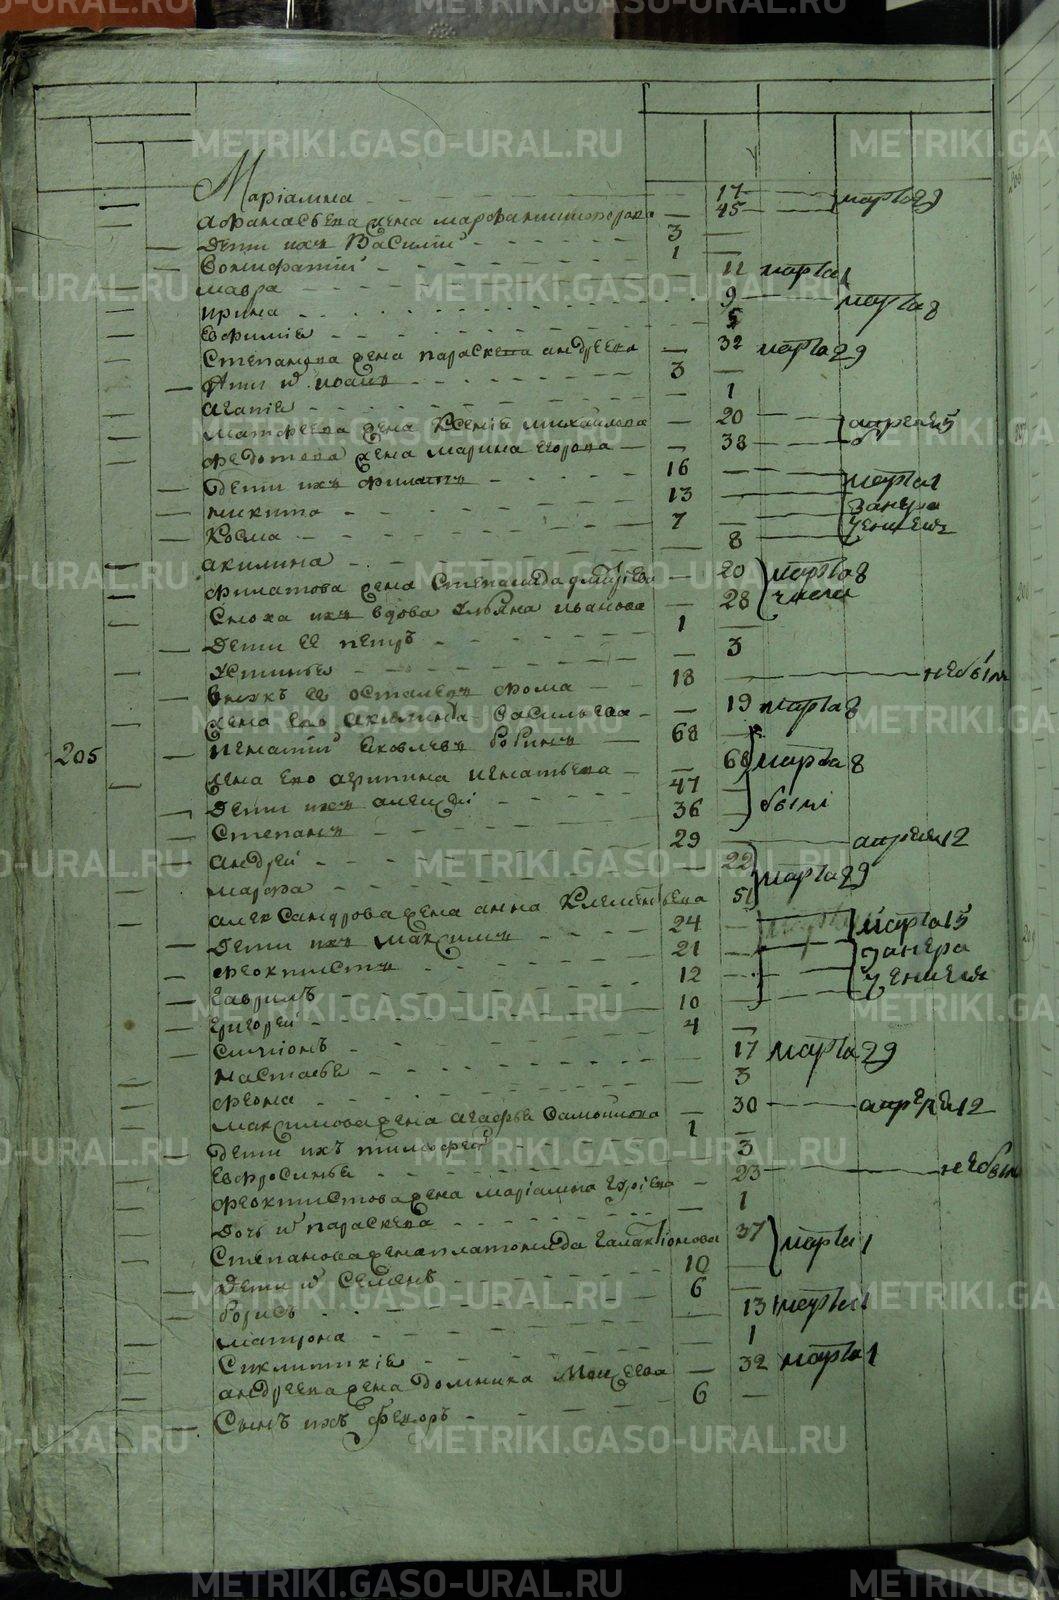 METRIKI.GASO-URAL.RU
Маріамна 17 марта 29
Афанасьева жена Марфа 45
Дети ихъ Василий 3
Вонифатий 1
мавра 11 марта 1
ирина 9 марта 8
Евфимия 5
Степанова жена параскева андреева 32 марта 29
Дети иоанъ 3
агапие 1
матфеева жена Ксения михайлова 20 апреля 5
федотова жена марина егорова 38
Дети ихъ филатъ 16 марта 1
никита 13 Занера
Козма 7 чением
акилина 8
филатова жена Степанида 20 марта 8
Сноха ихъ вдова Ульяна иванова 28 числа
Дети ее петръ 1
Устинья 3
внукъ ее фома 18 небыл
жена его акилина васильева 19 марта 8
205 игнатий яковлевъ 68
жена его агрипина игнатьева 68 марта 8
Дети ихъ алексеі 47 былі
Степанъ 36
андрей 29 апреля 12
марфа 22 марта 29
александрова жена анна Клементьева 51
Дети ихъ максимъ 24 марта 15
феоктистъ 21 Занера
гаврилъ 12 чением
григорей 10
симионъ 4
настасья 17 марта 29
феона 3
максимова жена агафья самойлова 30 апреля 12
Дети ихъ тимофей 1
Евфросинья 3
феоктистова жена маріамна 23 небыл
Дочь параскева 1
Степанова жена платонида галактіонова 37 марта 1
Дети Семенъ 10
борисъ 6
матрона 13 марта 1
Сиклитикия 1
андреева жена Домника Моисеева 32 марта 1
Сынъ ихъ Федоръ 6